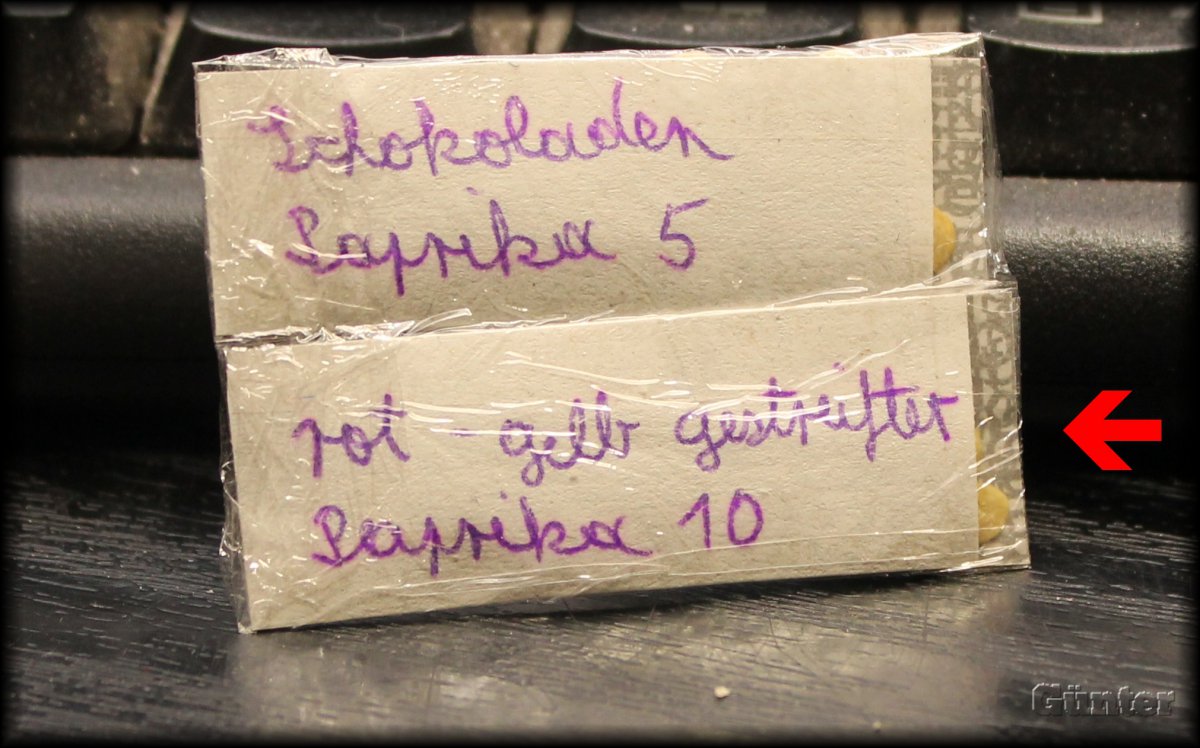 Schokoladen
Paprika 5
rot - gelb gestreifter
Paprika 10
Günter